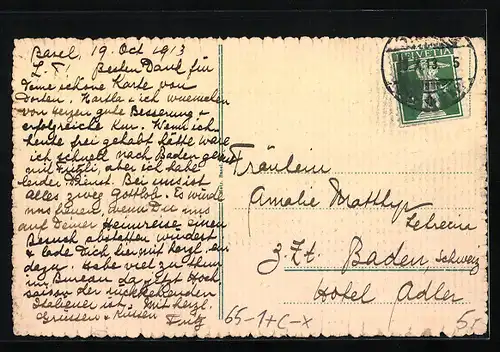 Basel, 19. Oct 1913
L. T! Besten Dank für
Deine schöne Karte von
dorten. + ich wuenschen
von Herzen gute Besserung +
erfolgreiche Kur. Wenn ich
heute frei gehabt hätte wäre
ich schnell nach Baden
mit aber ich habe
leider Dienst. Bei uns ist
alles zweg Gottlob. Es würde
uns freuen, wenn Du uns
auf Deiner Heimreise einen
Besuch abstatten wurdest
+ lade Dich hiermit herzl. ein
dazu. Habe viel zu thun
im Bureau da jetzt Hoch
saison der rückkehrenden
Italiener ist. Mit herzl.
Grüssen + Küssen
Fritz
HELVETIA
Fräulein
Amalie
Lehrerin
z. Zt. Baden, Schweiz
Hotel Adler
65-1+C-x